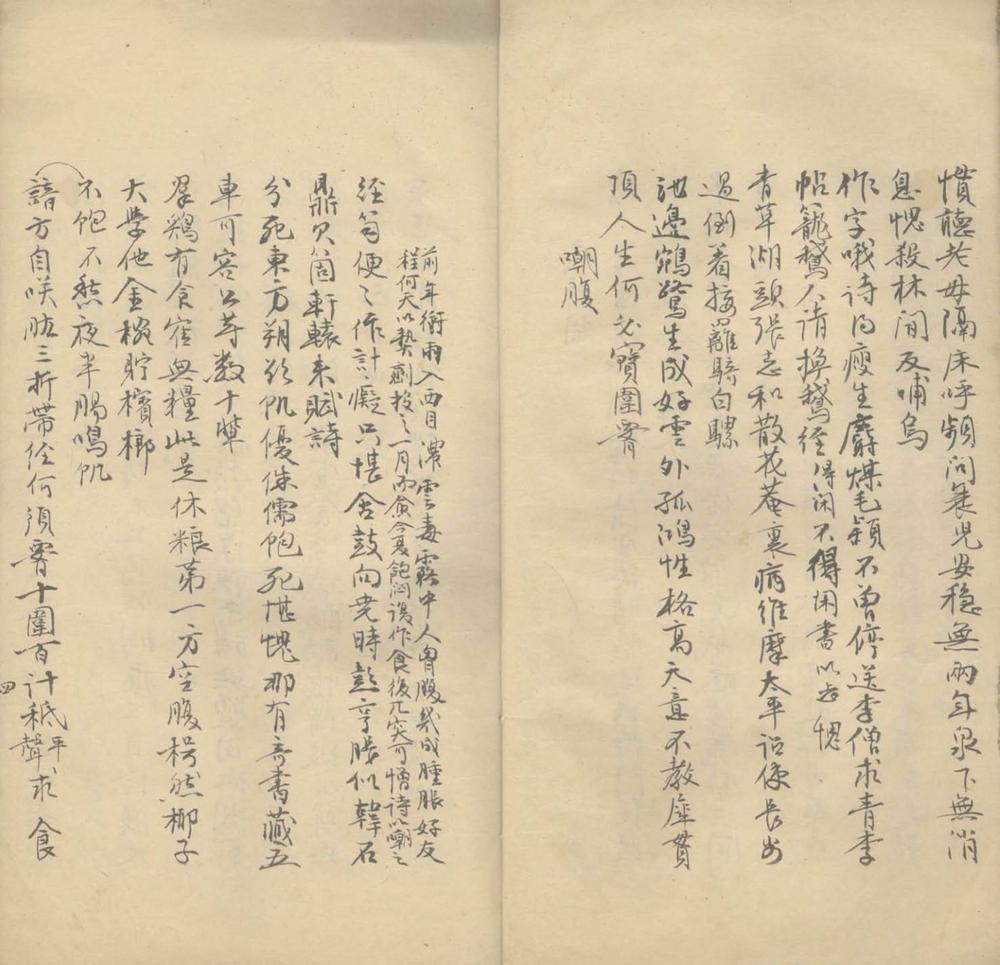 慣聽老母隔床呼頻問衰兒安穩無兩年泉下無消
息愧殺林間反哺烏
作字哦詩乃瘦生麝煤毛穎不曾停送李僧求青李
帖籠鵝人請換鵝經得閑不得閑書以志愧
青草湖頭張志和散花菴裏病維摩太平詔條長安
過倒着接䍦騎白騾
池邊鵁鷺生成好雲外孤鴻性格高天意不教犀貫
頂人生何必寶圍腰
嘲腹
前年衝雨入西目濃雲毒霧中人胃腹幾成腫脹好友
程何天以藥劑投之一月而愈今夏飽悶復作食後兀突可憎詩以嘲之
經笥便便作計癡只堪含鼓向堯時熬亨脹似韓石
鼎欠箇軒轅來賦詩
分死東方朔欲飢優侏儒飽死堪愧那有奇書藏五
車可容公等數十輩
羣鷄有食窖無糧此是休粮第一方空腹枵然椰子
大學他金椀貯檳榔
不飽不愁夜半腸鳴飢
諳方自咲肱三折帶經何須腎十圍百計秪平聲求食
四